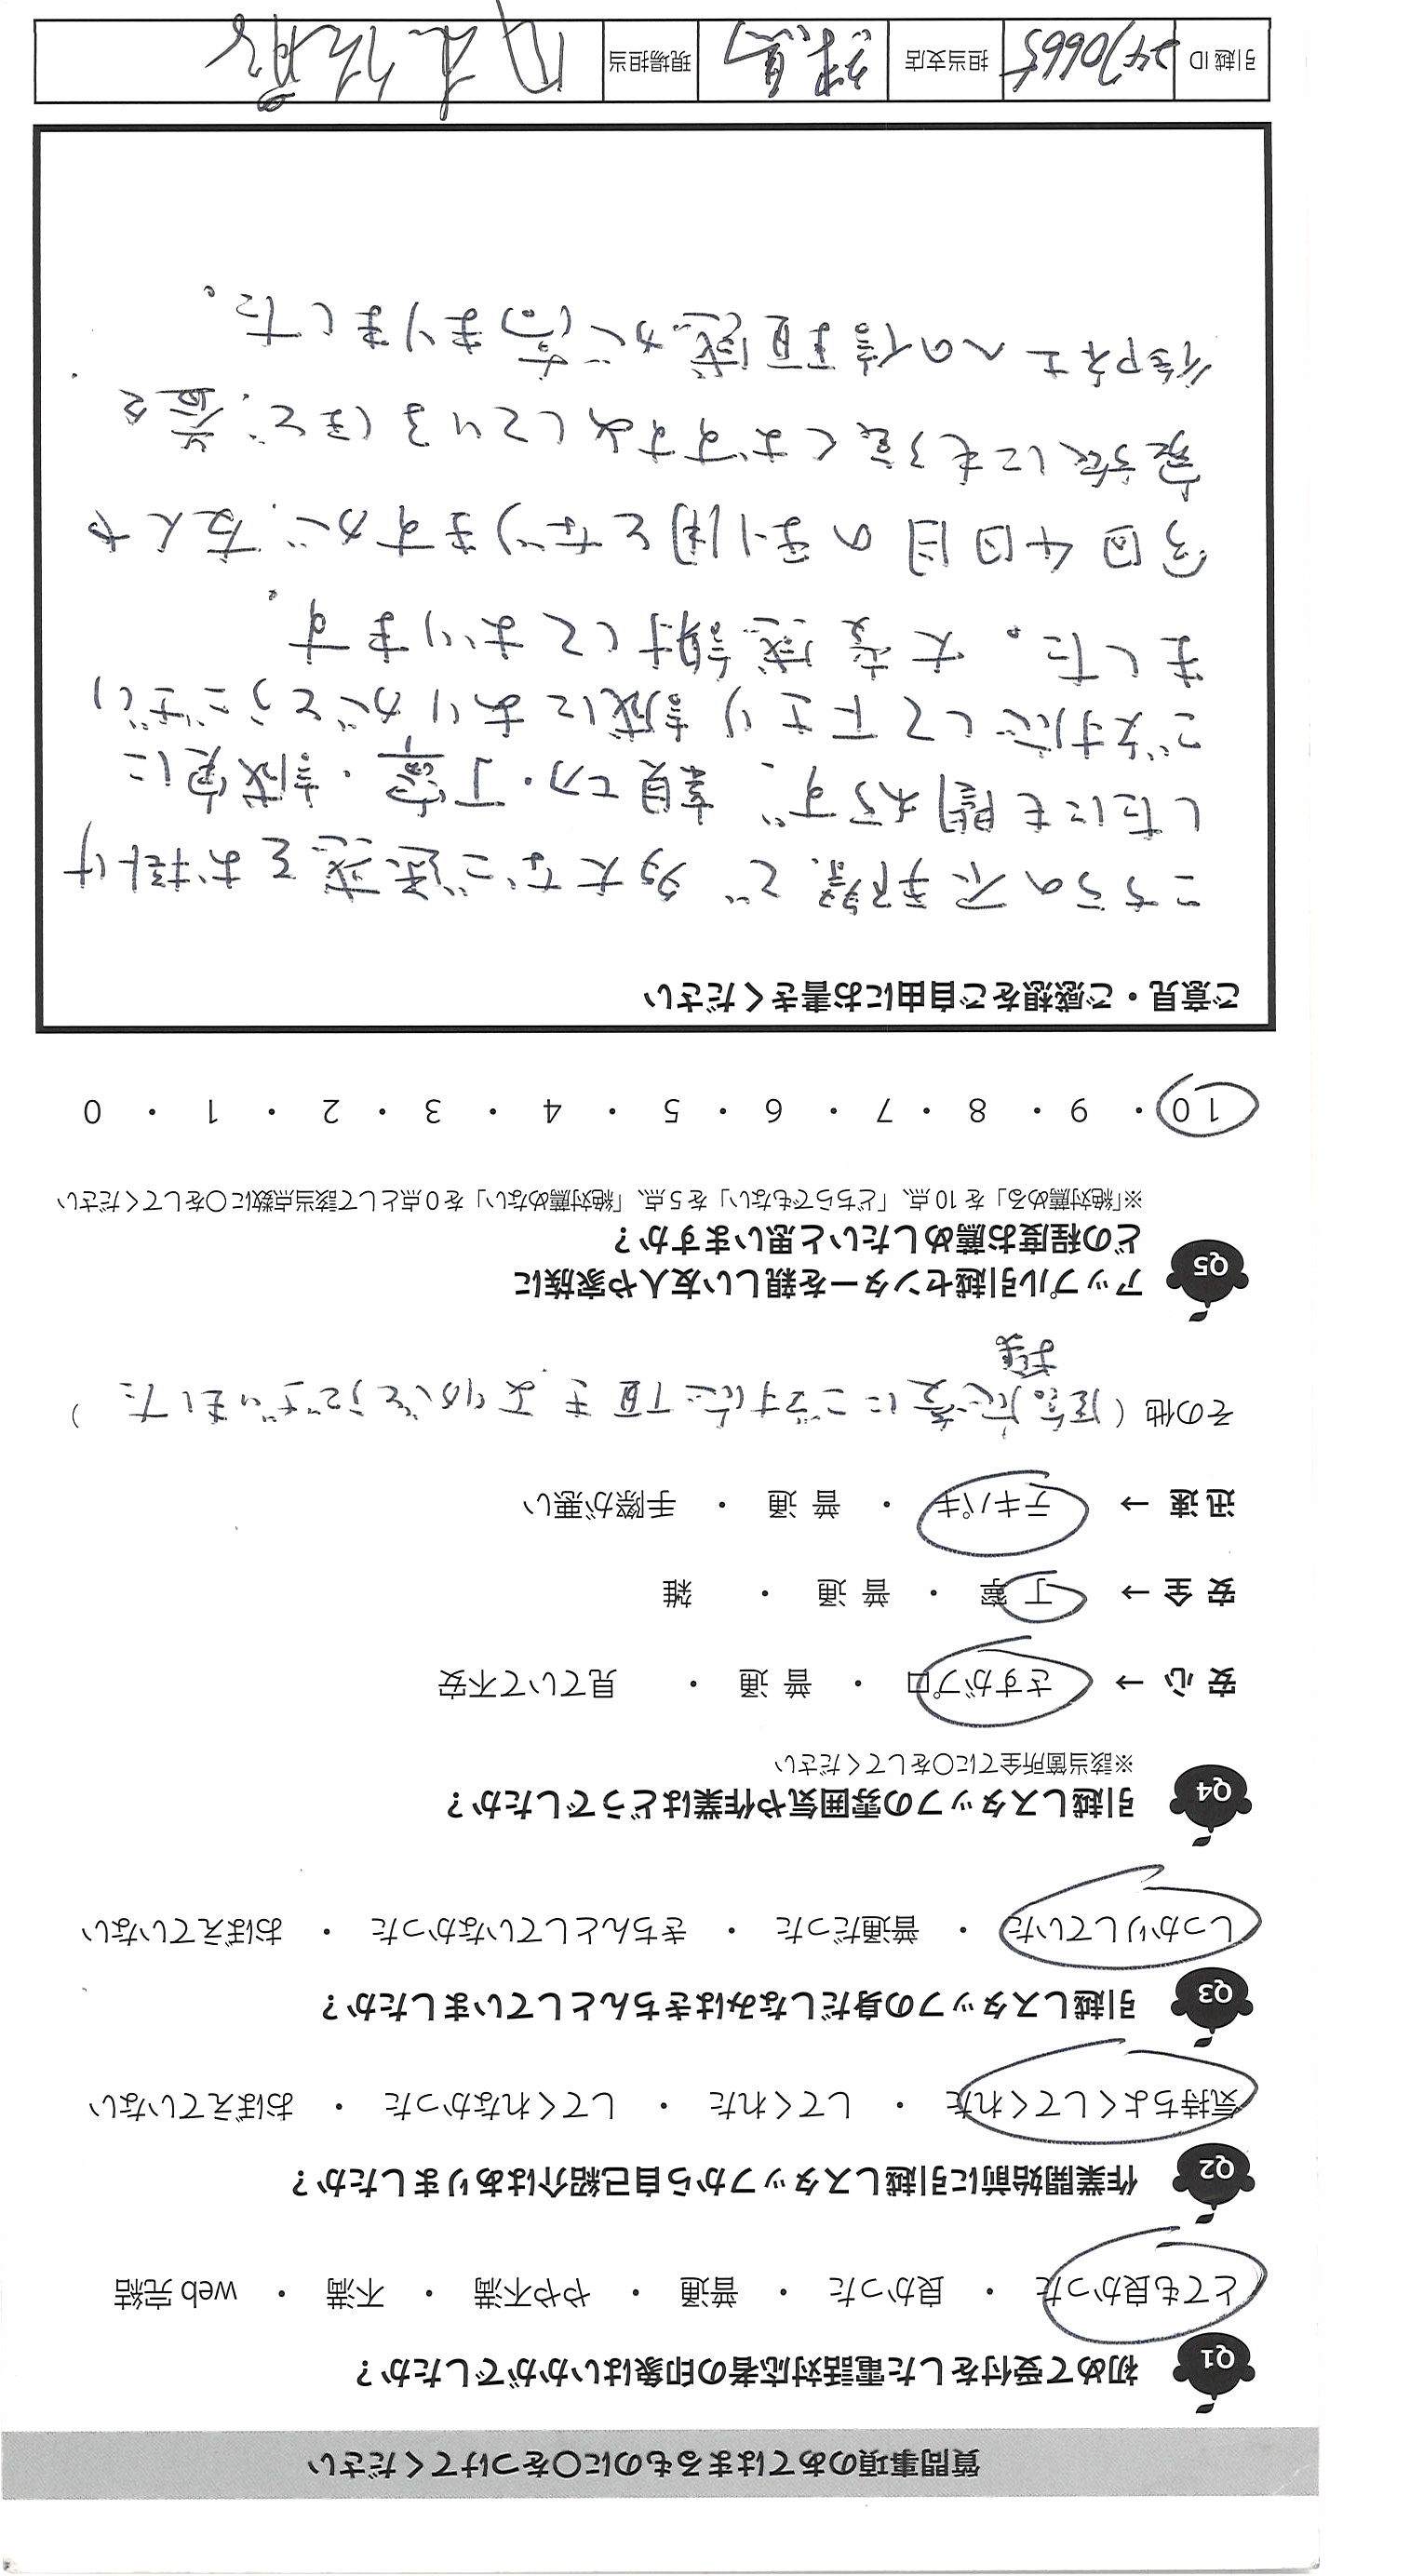 質問事項のあてはまるものに○をつけてください
Q1 初めて受付をした電話対応者の印象はいかがでしたか？
とても良かった ・ 良かった ・ 普通 ・ やや不満 ・ 不満 ・ web 完結
Q2 作業開始前に引越しスタッフから自己紹介はありましたか？
気持ちよくしてくれた ・ してくれた ・ してくれなかった ・ おぼえていない
Q3 引越しスタッフの身だしなみはきちんとしていましたか？
しっかりしていた ・ 普通だった ・ きちんとしていなかった ・ おぼえていない
Q4 引越しスタッフの雰囲気や作業はどうでしたか？
※該当箇所全てに○をしてください
安 心 → さすがプロ ・ 普 通 ・ 見ていて不安
安 全 → 丁 寧 ・ 普 通 ・ 雑
迅 速 → テキパキ ・ 普 通 ・ 手際が悪い
その他（臨機応変にご対応頂きありがとうございました）
Q5 アップル引越センターを親しい友人や家族に
どの程度お薦めしたいと思いますか？
※「絶対薦める」を 10 点、「どちらでもない」を 5 点、「絶対薦めない」を 0 点として該当点数に○をしてください
10 ・ 9 ・ 8 ・ 7 ・ 6 ・ 5 ・ 4 ・ 3 ・ 2 ・ 1 ・ 0
ご意見・ご感想をご自由にお書きください
こちらの不手際で多大なご迷惑をお掛け
したにも関わらず、親切・丁寧・誠実に
ご対応して下さり誠にありがとうござい
ました。大変感謝しております。
今回4回目の利用となりますが、友人や
家族にも強くおすすめしているほど、益々
御社への信頼感が高まりました。
引越 ID 2470665 担当支店 練馬 現場担当